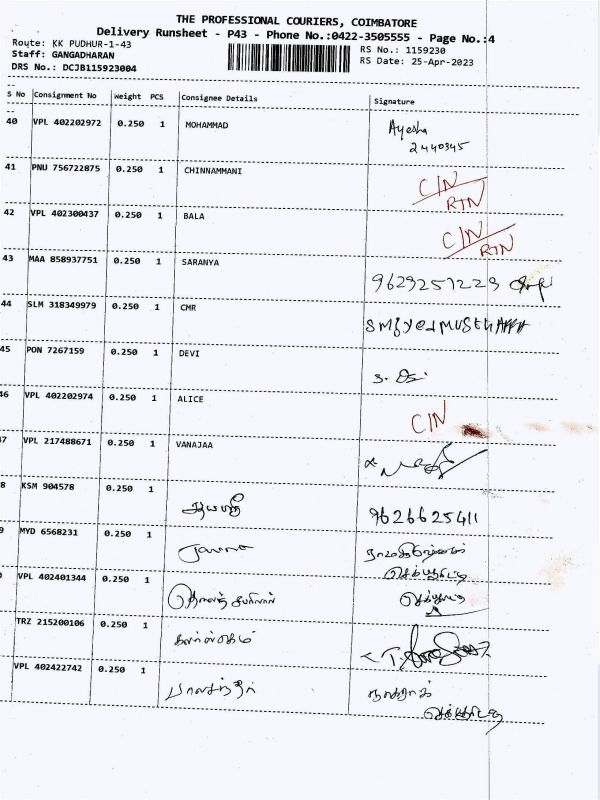 THE PROFESSIONAL COURIERS, COIMBATORE
Delivery Runsheet - P43 - Phone No.:0422-3505555 - Page No.:4
Route: KK PUDHUR-1-43
Staff: GANGADHARAN
DRS No.: DCJB115923004
RS No.: 1159230
RS Date: 25-Apr-2023
S No Consignment No Weight PCS Consignee Details Signature
40 VPL 402202972 0.250 1 MOHAMMAD Ayesha
2440345
41 PNU 756722875 0.250 1 CHINNAMMANI C/N
RTN
42 VPL 402300437 0.250 1 BALA C/N
RTN
43 MAA 858937751 0.250 1 SARANYA 9629251229
44 SLM 318349979 0.250 1 CMR
45 PON 7267159 0.250 1 DEVI
46 VPL 402202974 0.250 1 ALICE C/N
7 VPL 217488671 0.250 1 VANAJAA
8 KSM 904578 0.250 1 9626625411
9 MYD 6568231 0.250 1
VPL 402401344 0.250 1
TRZ 215200106 0.250 1
VPL 402422742 0.250 1